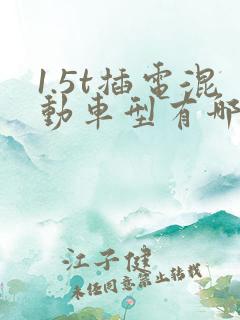 1.5t插电混
動車型有哪
江子健
未经同意禁止转载